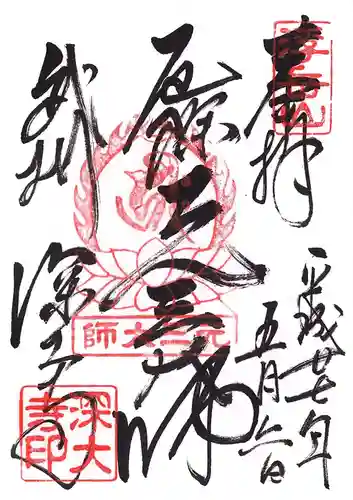 浮岳山
奉拝
平成廿七年
五月六日
厄除元三大師
元三大師
武州
深大寺
深大
寺印